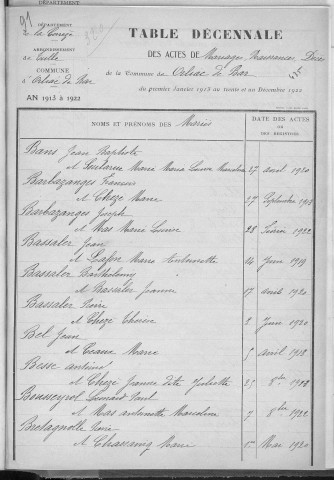 DÉPARTEMENT
91
DÉPARTEMENT
de la Corrèze
ARRONDISSEMENT
de Tulle
COMMUNE
d'Orliac de Bar
AN 1913 à 1922
TABLE DÉCENNALE
DES ACTES DE Mariages
de la Commune de Orliac de Bar
du premier Janvier 1913 au trente et un Décembre 1922
NOMS ET PRÉNOMS DES Mariés
DATE DES ACTES
OU DES
Bans Jean Baptiste
et Marie Maria 27 avril 1920
Barbazanges François
et Chèze Marie 27 Septembre
Barbazanges Joseph
et Mas Marie Louise 28 février 1922
Bassaler Jean
et Lafon Marie Antoinette 24 Juin 1919
Bassaler Barthélemy
et Bassaler Jeanne 17 avril 1920
Bassaler
et Chèze Thérèse 2 Juin 1920
Bel Jean
et Marie 5 avril 1918
Besse Antoine
et Chèze Jeanne dite Juliette 25 8bre
Bousseyrol Léonard Paul
et Mas Antoinette Marceline 7 8bre 1922
Bretagnolle
et Chassaing Marie 1er Mai 1920